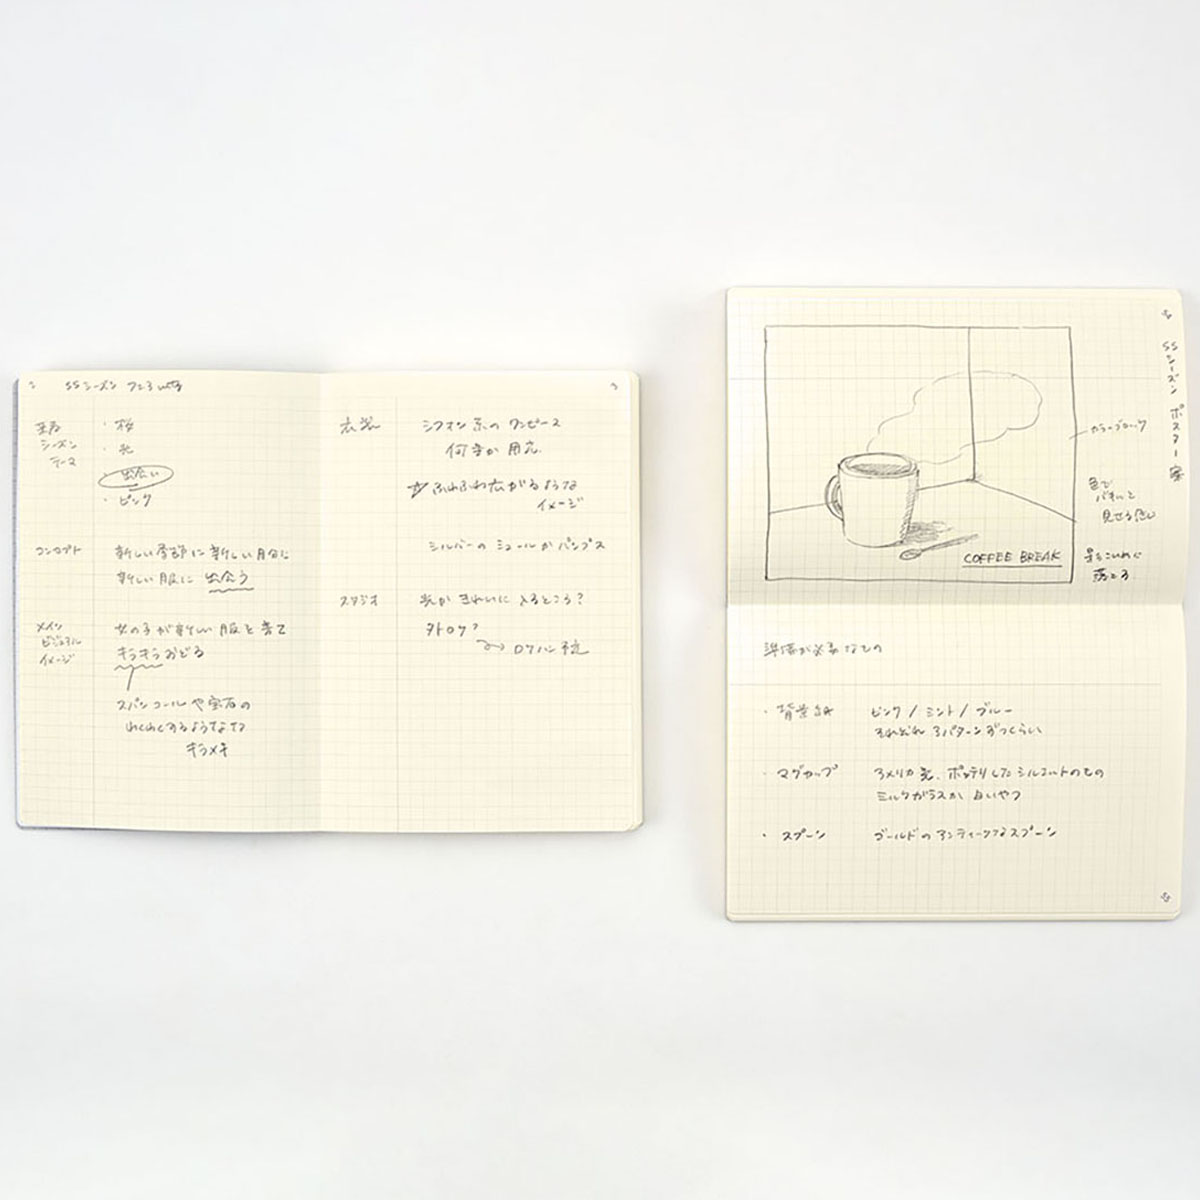 SSシーズン
シーズン
テーマ
・桜
・光
・出会い
・ピンク
コンセプト
新しい季節に新しい自分に
新しい服に 出会う
メイン
ビジュアル
イメージ
女の子が新しい服を着て
キラキラおどる
スパンコールや宝石の
わくわくするような
キラメキ
衣装
シフォン系のワンピース
何着か用意
☆ふわふわ広がるような
イメージ
シルバーのミュールかパンプス
スタジオ
光がきれいに入るところ?
外ロケ?
ロケハン
SSシーズン ポスター案
カラーブロック
色で
パキッと
見せる感じ
COFFEE BREAK
影もきれいに
落とる
準備が必要なもの
・背景紙
ピンク / ミント / ブルー
それぞれ 3パターンずつくらい
・マグカップ
アメリカ製、ポッテリしたシルエットのもの
ミルクガラスか 白いやつ
・スプーン
ゴールドのアンティークなスプーン